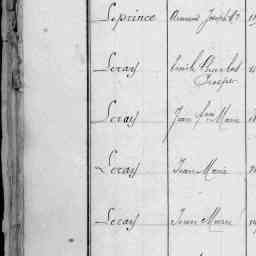 Leprince Armand Joseph
Leray Emile Charles
Prosper
Leray Jean Marie
Leray Jean Marie
Leray Jean Marie